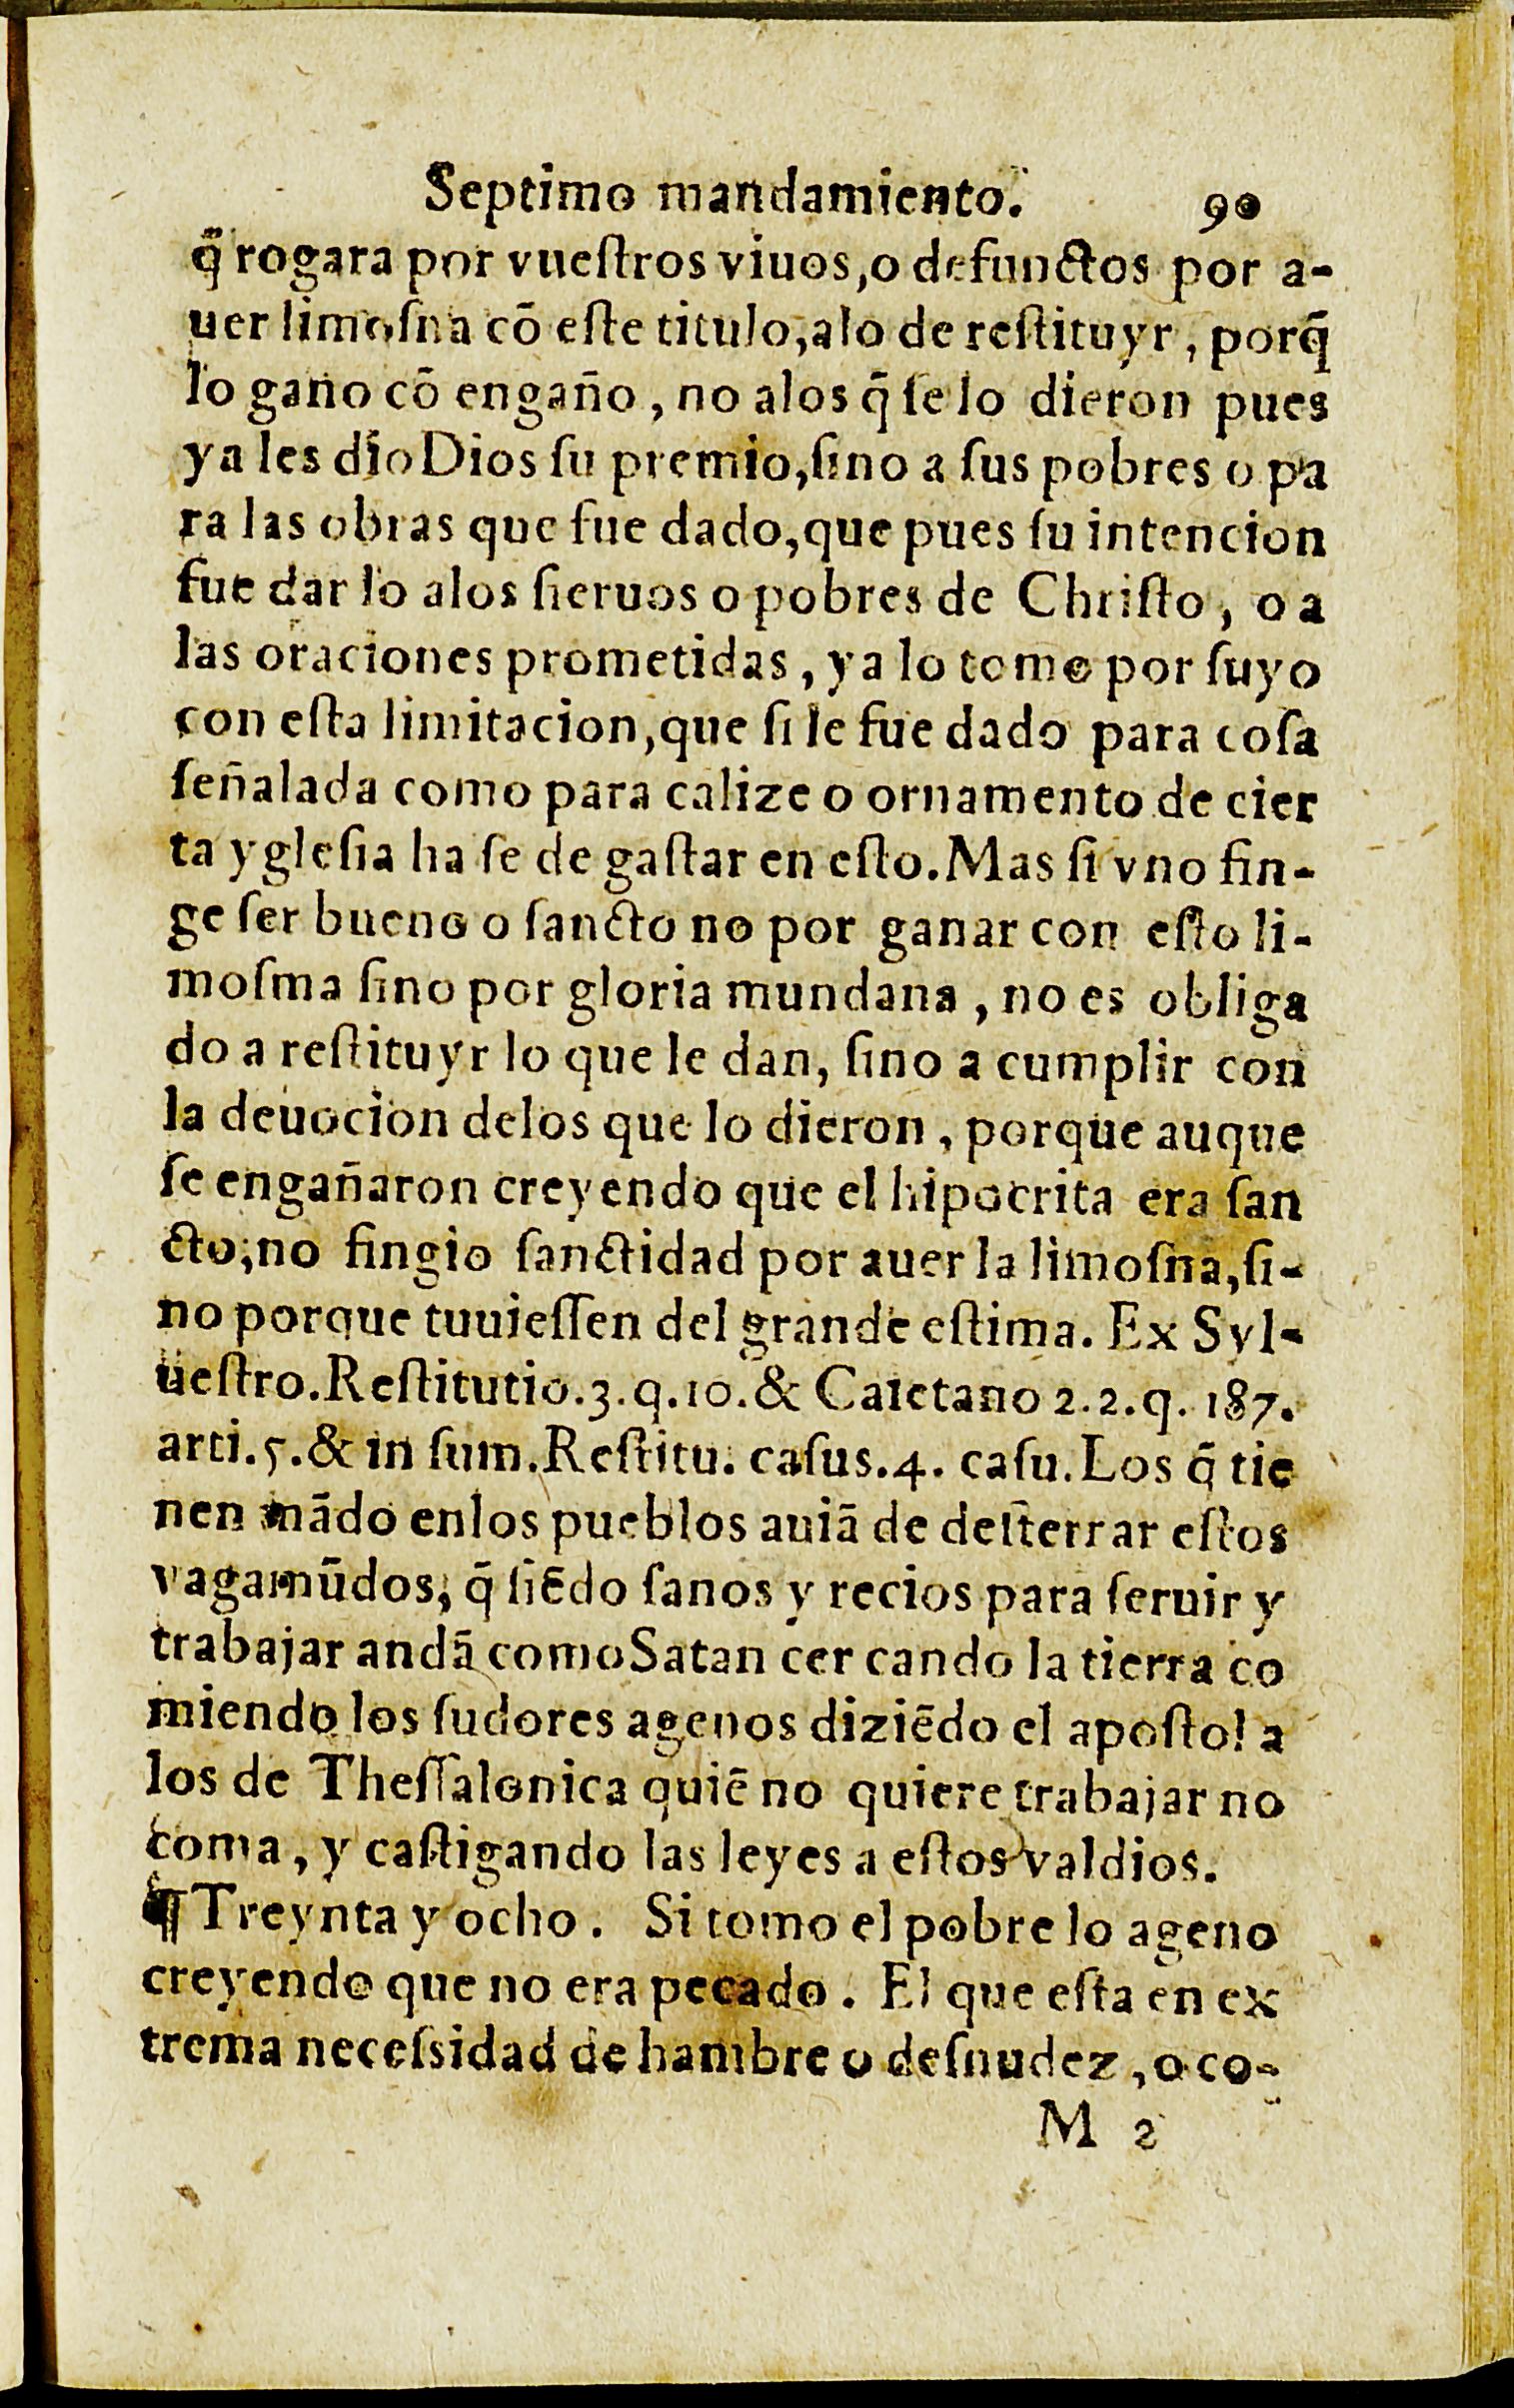 Septimo mandamiento. 90
q̃ rogara por vueſtros viuos,o defunctos por a-
uer limoſna cõ eſte titulo,alo de reſtituyr, porq̃
lo gano cõ engaño, no alos q̃ ſe lo dieron pues
ya les dio Dios ſu premio,ſino a ſus pobres o pa
ra las obras que fue dado,que pues ſu intencion
fue dar lo alos ſieruos o pobres de Chriſto, o a
las oraciones prometidas, ya lo tomo por ſuyo
con eſta limitacion,que ſi le fue dado para coſa
ſeñalada como para calize o ornamento de cier
ta ygleſia ha ſe de gaſtar en eſto.Mas ſi vno fin-
ge ſer bueno o ſancto no por ganar con eſto li-
moſma ſino por gloria mundana, no es obliga
do a reſtituyr lo que le dan, ſino a cumplir con
la deuocion delos que lo dieron, porque auque
ſe engañaron creyendo que el hipocrita era ſan
cto;no fingio ſanctidad por auer la limoſna,ſi-
no porque tuuieſſen del grande eſtima. Ex Syl-
ueſtro.Reſtitutio.3.q.10.& Caietano 2.2.q. 187.
arti.5.& in ſum.Reſtitu. caſus.4. caſu.Los q̃ tie
nen mãdo enlos pueblos auiã de deſterrar eſtos
vagamũdos, q̃ ſiẽdo ſanos y recios para ſeruir y
trabajar andã como Satan cer cando la tierra co
miendo los ſudores agenos diziẽdo el apoſtol a
los de Theſſalonica quiẽ no quiere trabajar no
coma, y caſtigando las leyes a eſtos valdios.
¶ Treynta y ocho. Si tomo el pobre lo ageno
creyendo que no era pecado. El que eſta en ex
trema neceſsidad de hambre o deſnudez, o co-
M 2